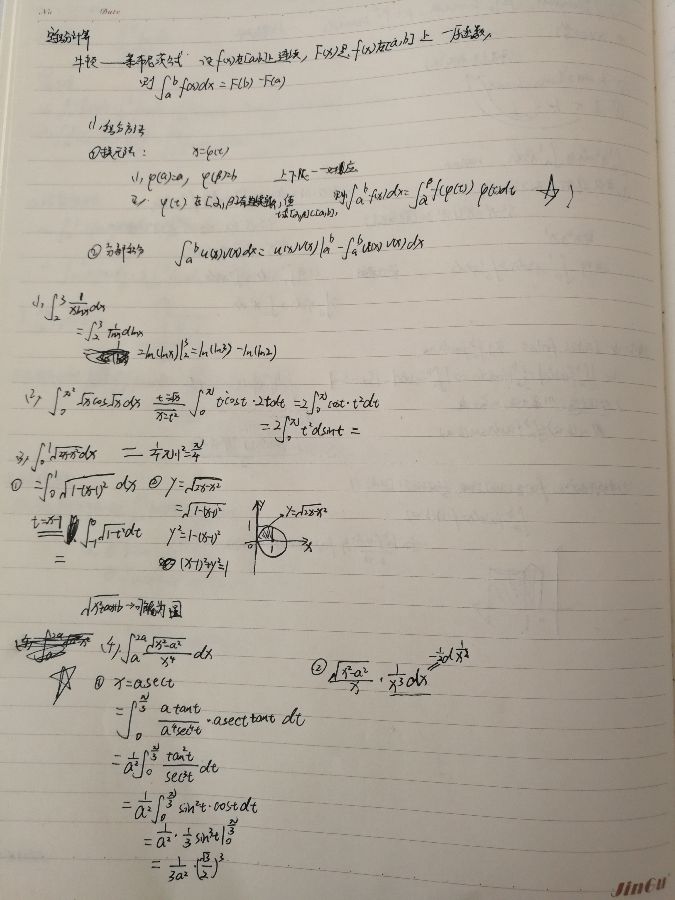 No. Date
定积分计算
牛顿——莱布尼茨公式 设f(x)在[a,b]上连续, F(x)是f(x)在[a,b]上一原函数,
则∫_a^b f(x)dx = F(b) - F(a)
①换元法: x=φ(t)
(1), φ(a)=a, φ(β)=b 上下限一一对应
φ(t) 在[α,β] ∫_a^b f(x)dx = ∫_a^β f(φ(t)) φ(t)dt ☆
②分部积分 ∫_a^b u(x)v(x)dx = u(x)v(x)|_a^b - ∫_a^b u(x) v(x) dx
(1), ∫_2^3 1/(xlnx) dx
= ∫_2^3 1/lnx dlnx
= ln(lnx)|_2^3 = ln(ln3) - ln(ln2)
(2), ∫_0^{π²} √x cos√x dx t=√x x=t² ∫_0^π t cost · 2t dt = 2∫_0^π cost · t² dt
= 2∫_0^π t² dsint =
(3), ∫_0^1 √(2x-x²) dx = 1/4 π·1² = π/4
① = ∫_0^1 √(1-(x-1)²) dx ② y=√(2x-x²)
= √(1-(x-1)²) y y=√(2x-x²)
t=x-1 ∫_{-1}^0 √(1-t²) dt y²=1-(x-1)² 1 0 1 x
= (x-1)²+y²=1
√(x²+ax+b) → 可能为圆
(4), ∫_a^{2a} √(x²-a²)/x⁴ dx
☆ ① x=asect ② √(x²-a²)/x · 1/x³ dx -1/2 d 1/x²
= ∫_0^{π/3} atant/(a⁴sec⁴t) · asect tant dt
= 1/a² ∫_0^{π/3} tan²t/sec³t dt
= 1/a² ∫_0^{π/3} sin²t · cost dt
= 1/a² · 1/3 sin³t|_0^{π/3}
= 1/(3a²) · (√3/2)³
JinGu